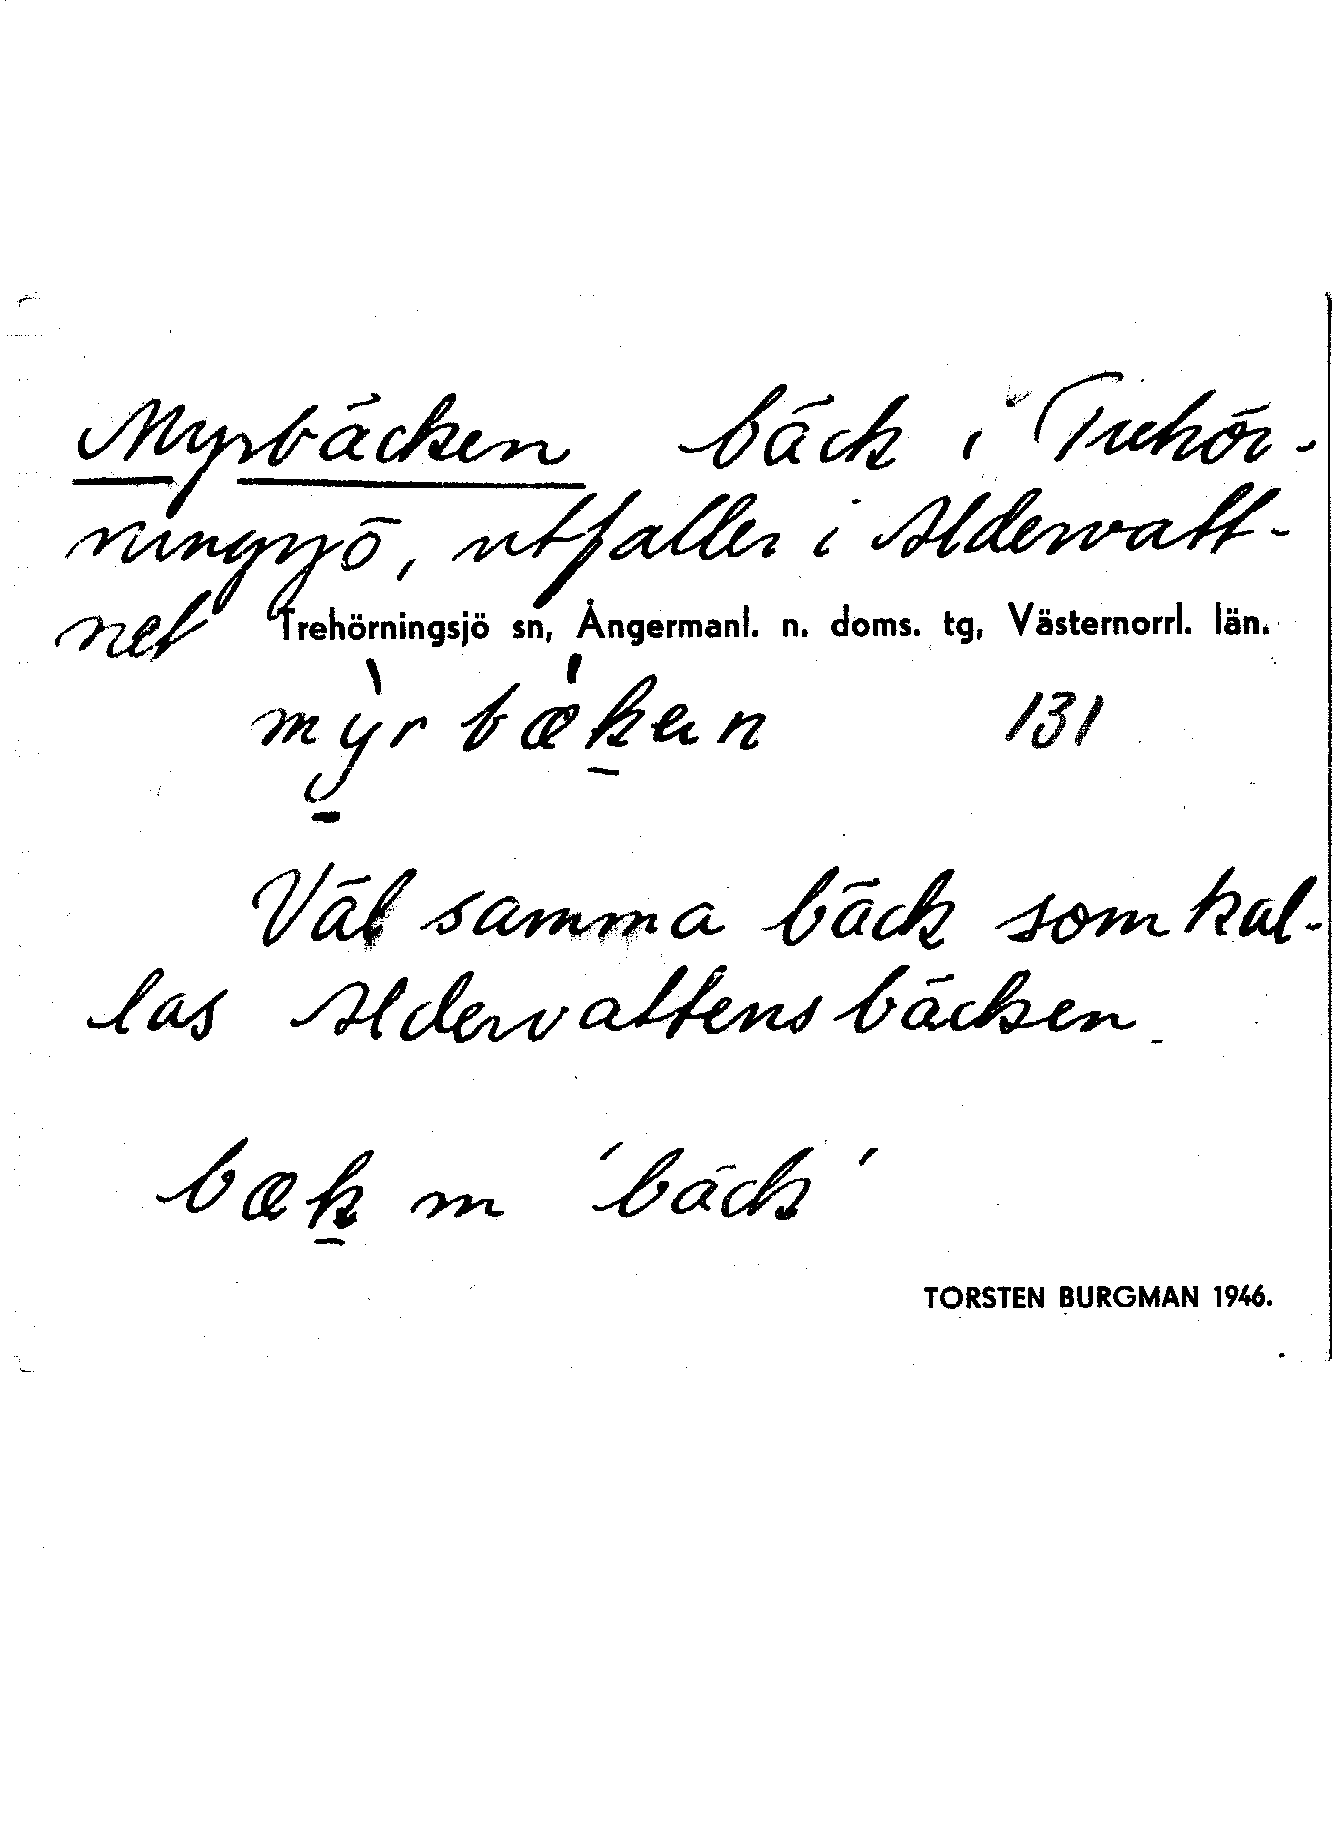 Myrbäcken bäck i Trehör-
ningsjö, utfaller i Aldervatt-
net Trehörningsjö sn, Ångermanl. n. doms. tg, Västernorrl. län.
mỳr bæ̀kan 131
Väl samma bäck som kal-
las Aldervattensbäcken
bæk m 'bäck'
TORSTEN BURGMAN 1946.